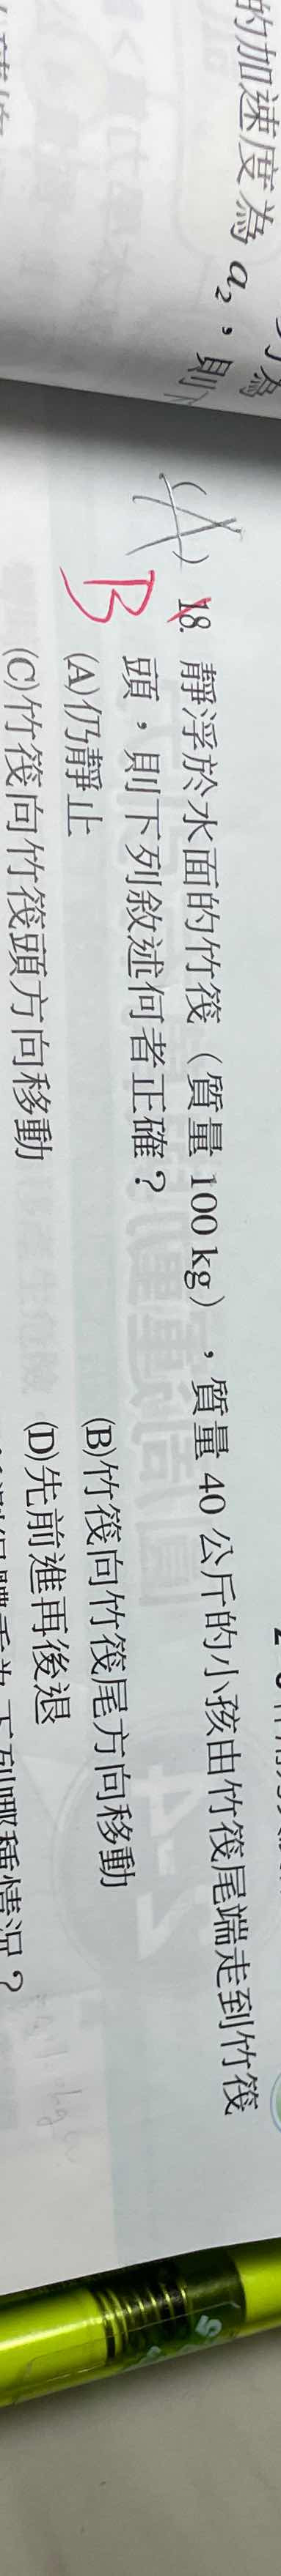 的加速度為 a₂,則
(A) 18. 靜浮於水面的竹筏(質量 100 kg),質量 40 公斤的小孩由竹筏尾端走到竹筏
B
頭,則下列敘述何者正確?
(A)仍靜止
(B)竹筏向竹筏尾方向移動
(C)竹筏向竹筏頭方向移動
(D)先前進再後退
下列哪種情況?